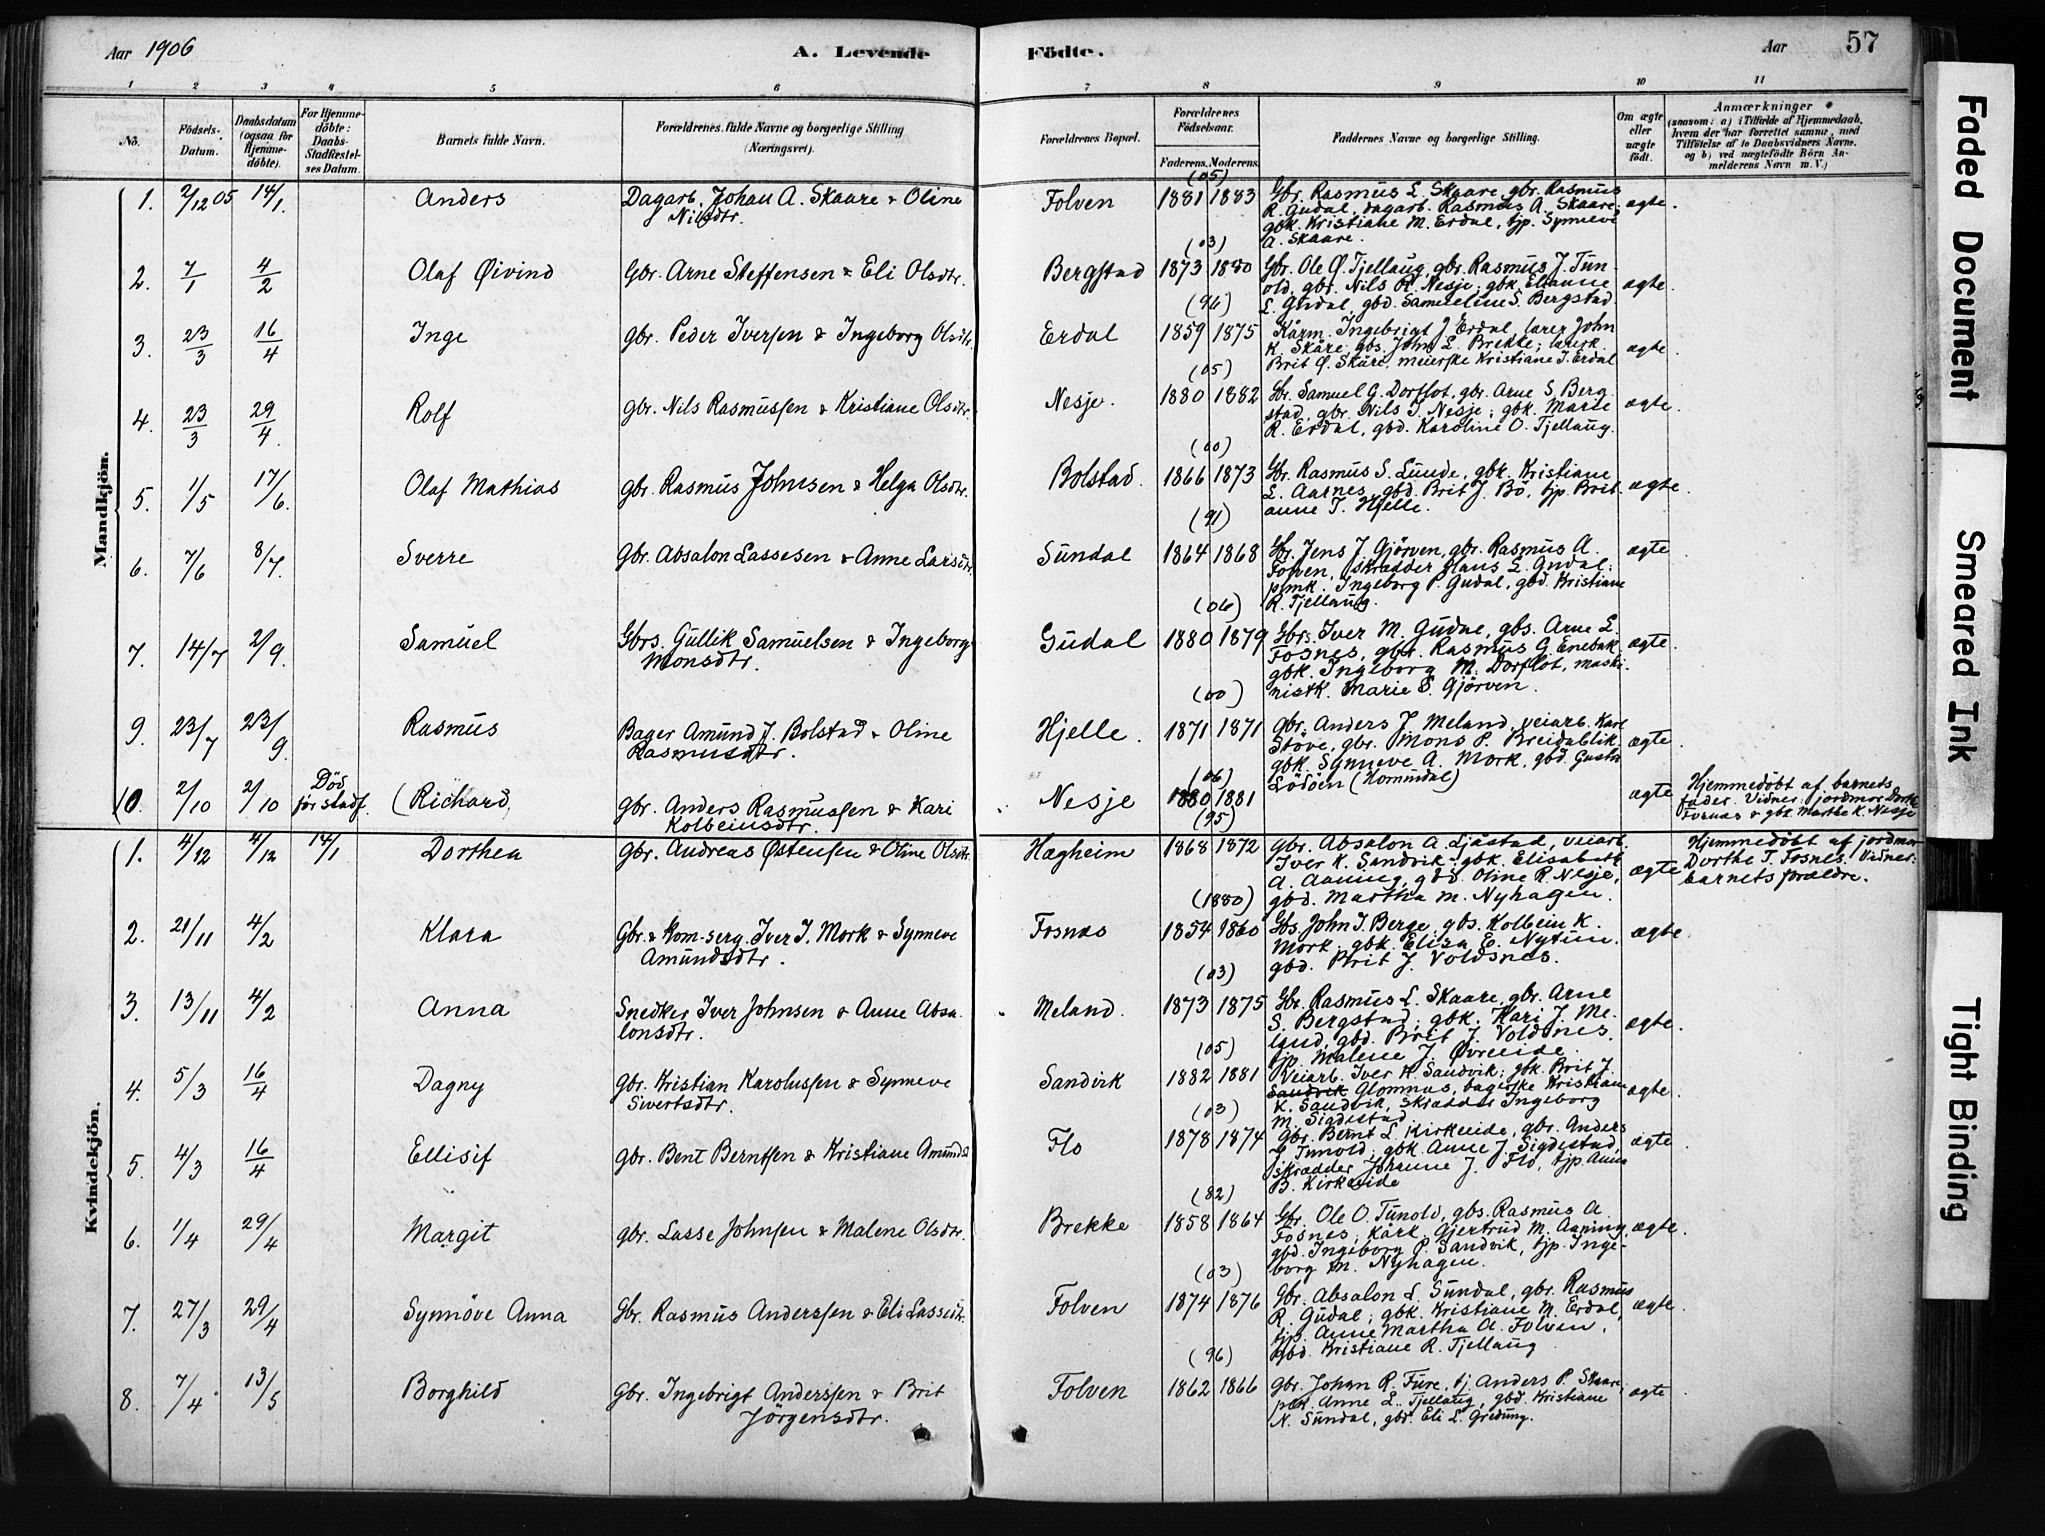 Aar 1906
A. Levende
Födte.
Aar
57
1 2 3 4 5 6 7 8 9 10 11
No.
Födsels-Datum.
Daabsdatum (ogsaa for Hjemmedöbte).
For Hjemmedöbte: Daabs-Stadfæstelses Datum.
Barnets fulde Navn.
Forældrenes fulde Navne og borgerlige Stilling (Næringsvei).
Forældrenes Bopæl.
Forældrenes Födselsaar.
Faderens. Moderens.
Faddernes Navne og borgerlige Stilling.
Om ægte eller uægte födt.
Anmærkninger
(saasom: a) i Tilfælde af Hjemmedaab, hvem der har forrettet samme, med Tilföielse af to Daabsvidners Navne, og b) ved uægtefödte Börn Anmelderens Navn m. V.)
Mandkjön.
1. 2/12 05 14/1. Anders
Dagarb. Johan A. Skaare & Oline
Nilsdtr.
Folven (05) 1881 1883
Gbr. Rasmus L. Skaare, gbr. Rasmus
R. Gudal, dagarb. Rasmus A. Skaare;
gbk. Kristiane M. Erdal, tjp. Synneve
A. Skaare.
ægte.
2. 7/1 4/2 Olaf Øivind
Gbr. Arne Steffensen & Eli Olsdtr.
Bergstad (03) 1873 1880
Gbr. Ole Ø. Tjellaug, gbr. Rasmus J. Tun-
old, gbr. Nils R. Nesje; gbk. Elianne
L. Gudal, gbd. Samueline S. Bergstad.
ægte.
3. 23/3 16/4 Inge
gbr. Peder Iversen & Ingeborg Olsdtr.
Erdal (96) 1859 1875
Kårm. Ingebrigt J. Erdal, lærer John
K. Skåre, gbs. John L. Brekke; lærerk.
Brit Ø. Skåre, meierske Kristiane I. Erdal
ægte.
4. 23/3 29/4. Rolf
gbr. Nils Rasmussen & Kristiane Olsdtr.
Nesje. (05) 1880 1882
Gbr. Samuel G. Dorflot, gbr. Arne S. Berg
stad, gbr. Nils I. Nesje; gbk. Marie
R. Erdal, gbd. Karoline O. Tjellaug.
ægte.
5. 1/5 17/6. Olaf Mathias
gbr. Rasmus Johnsen & Helga Olsdtr.
Bolstad. (00) 1866 1873
Gbr. Rasmus S. Lunde, gbk. Kristiane
L. Aarnes, gbd. Brit J. Bö, tjp. Brit
anne T. Hjelle.
ægte.
6. 7/6 8/7. Sverre
Gbr. Absalon Lassesen & Anne Larsdtr.
Sundal (91) 1864 1868
Gbr. Jens J. Gjörven, gbr. Rasmus A.
Folven, skrædder Hans L. Gudal;
Ingeborg P. Gudal, gbd. Kristiane
R. Tjellaug.
ægte.
7. 14/7 2/9. Samuel
Gbrs. Gullik Samuelsen & Ingeborg
Monsdtr.
Gudal (06) 1880 1879
Gbrs. Iver M. Gudal, gbs. Arne L.
Fosnes, gbr. Rasmus G. Enebak
gbk. Ingeborg M. Dorflot, maski-
nistk. Marie S. Gjörven.
ægte.
9. 23/7 23/9. Rasmus
Bager Amund J. Bolstad & Oline
Rasmusdtr.
Hjelle. (00) 1871 1871
gbr. Anders J. Meland, veiarb. Karl
Stöve, gbr. Mons P. Breidablik
gbk. Synneve A. Mork, gbd.
Lödöen (Homindal)
ægte.
10. 2/10 2/10 Död
för stadf. (Richard,
gbr. Anders Rasmussen & Kari
Kolbeinsdtr.
Nesje (06) 1880 1881
ægte
Hjemmedöbt af barnets
fader. Vidner: jordmor Dorthe
Fosnæs & gbk. Marthe K. Nesje
Kvindekjön.
1. 4/12 4/12 14/1 Dorthea
gbr. Andreas Østensen & Oline Olsdtr.
Hægheim (95) 1868 1872
gbr. Absalon A. Ljåstad, veiarb.
Iver K. Sandvik; gbk. Elisabeth
A. Aaning, gbd. Oline R. Nesje,
gbd. Martha M. Nyhagen.
ægte
Hjemmedöbt af jordmor
Dorthe T. Fosnes. Vidner:
barnets forældre.
2. 21/11 4/2 Klara
Gbr. & kom-serg. Iver I. Mork & Synneve
Amundsdtr.
Fosnæs (1880) 1854 1860
Gbs. John I. Berge, gbs. Kolbein K.
Mork, gbk. Elisa E. Nytun.
gbd. Brit J. Voldsnes.
ægte.
3. 13/11 4/2 Anna
Snedker Iver Johnsen & Anne Absa-
lonsdtr.
Meland. (03) 1873 1875
Gbr. Rasmus L. Skaare, gbr. Arne
S. Bergstad; gbk. Kari J. Me-
land, gbd. Brit J. Voldsnes.
tjp. Malene J. Övreeide
ægte.
4. 5/3 16/4 Dagny
gbr. Kristian Karolussen & Synneve
Sivertsdtr.
Sandvik (05) 1882 1881
Veiarb. Iver K. Sandvik; gbk. Brit J.
Sandvik Glomnæs, bagerske Kristiane
K. Sandvik, skrædder Ingeborg
M. Sigdestad
ægte.
5. 4/3 16/4 Ellisif
gbr. Bent Berntsen & Kristiane Amundsd
Flo (03) 1878 1874
Gbr. Bernt L. Kirkeeide, gbr. Anders
J. Tunold; gbk. Anne J. Sigdestad
skrædder Johanne J. Flo, tjp. Anna
B. Kirkeeide
ægte.
6. 1/4 29/4 Margit
gbr. Lasse Johnsen & Malene Olsdtr.
Brekke (82) 1858 1864
Gbr. Ole O. Tunold, gbs. Rasmus A.
Fosnes, kårk. Gjertrud M. Aaning,
gbd. Ingeborg P. Sandvik, tjp. Inge-
borg M. Nyhagen.
ægte.
7. 27/3 29/4 Synnöve Anna
Gbr. Rasmus Anderssen & Eli Lassedtr.
Folven (03) 1874 1876
Gbr. Absalon L. Sundal, gbr. Rasmus
R. Gudal; gbk. Kristiane M. Erdal,
tjp. Anne Martha A. Folven,
gbd. Kristiane R. Tjellaug
ægte.
8. 7/4 13/5 Borghild
Gbr. Ingebrigt Anderssen & Brit
Jörgensdtr.
Folven (96) 1862 1866
gbr. Johan R. Fure, tj. Anders P. Skaare
Anne L. Tjellaug, gbd. Kristiane
N. Sundal, gbd. Eli L. Gredung.
ægte
Faded Document
Smeared Ink
Tight Binding